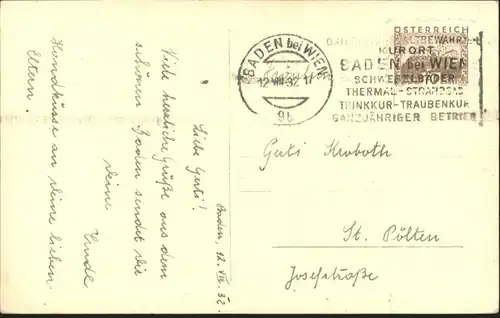 Baden, 12. VII. 32
Liebe Gerti!
Viele herzliche Grüße aus dem
schönen Baden sendet Dir
Deine
Handküsse an Deine lieben
Eltern.
BADEN bei WIEN
12. VII. 32. 17
9b
ÖSTERREICH
KURORT
BADEN bei WIEN
SCHWEFELBÄDER
THERMAL-STRANDBAD
TRINKKUR-TRAUBENKUR
GANZJÄHRIGER BETRIEB
Gerti Kroboth
St. Pölten
Josefstraße